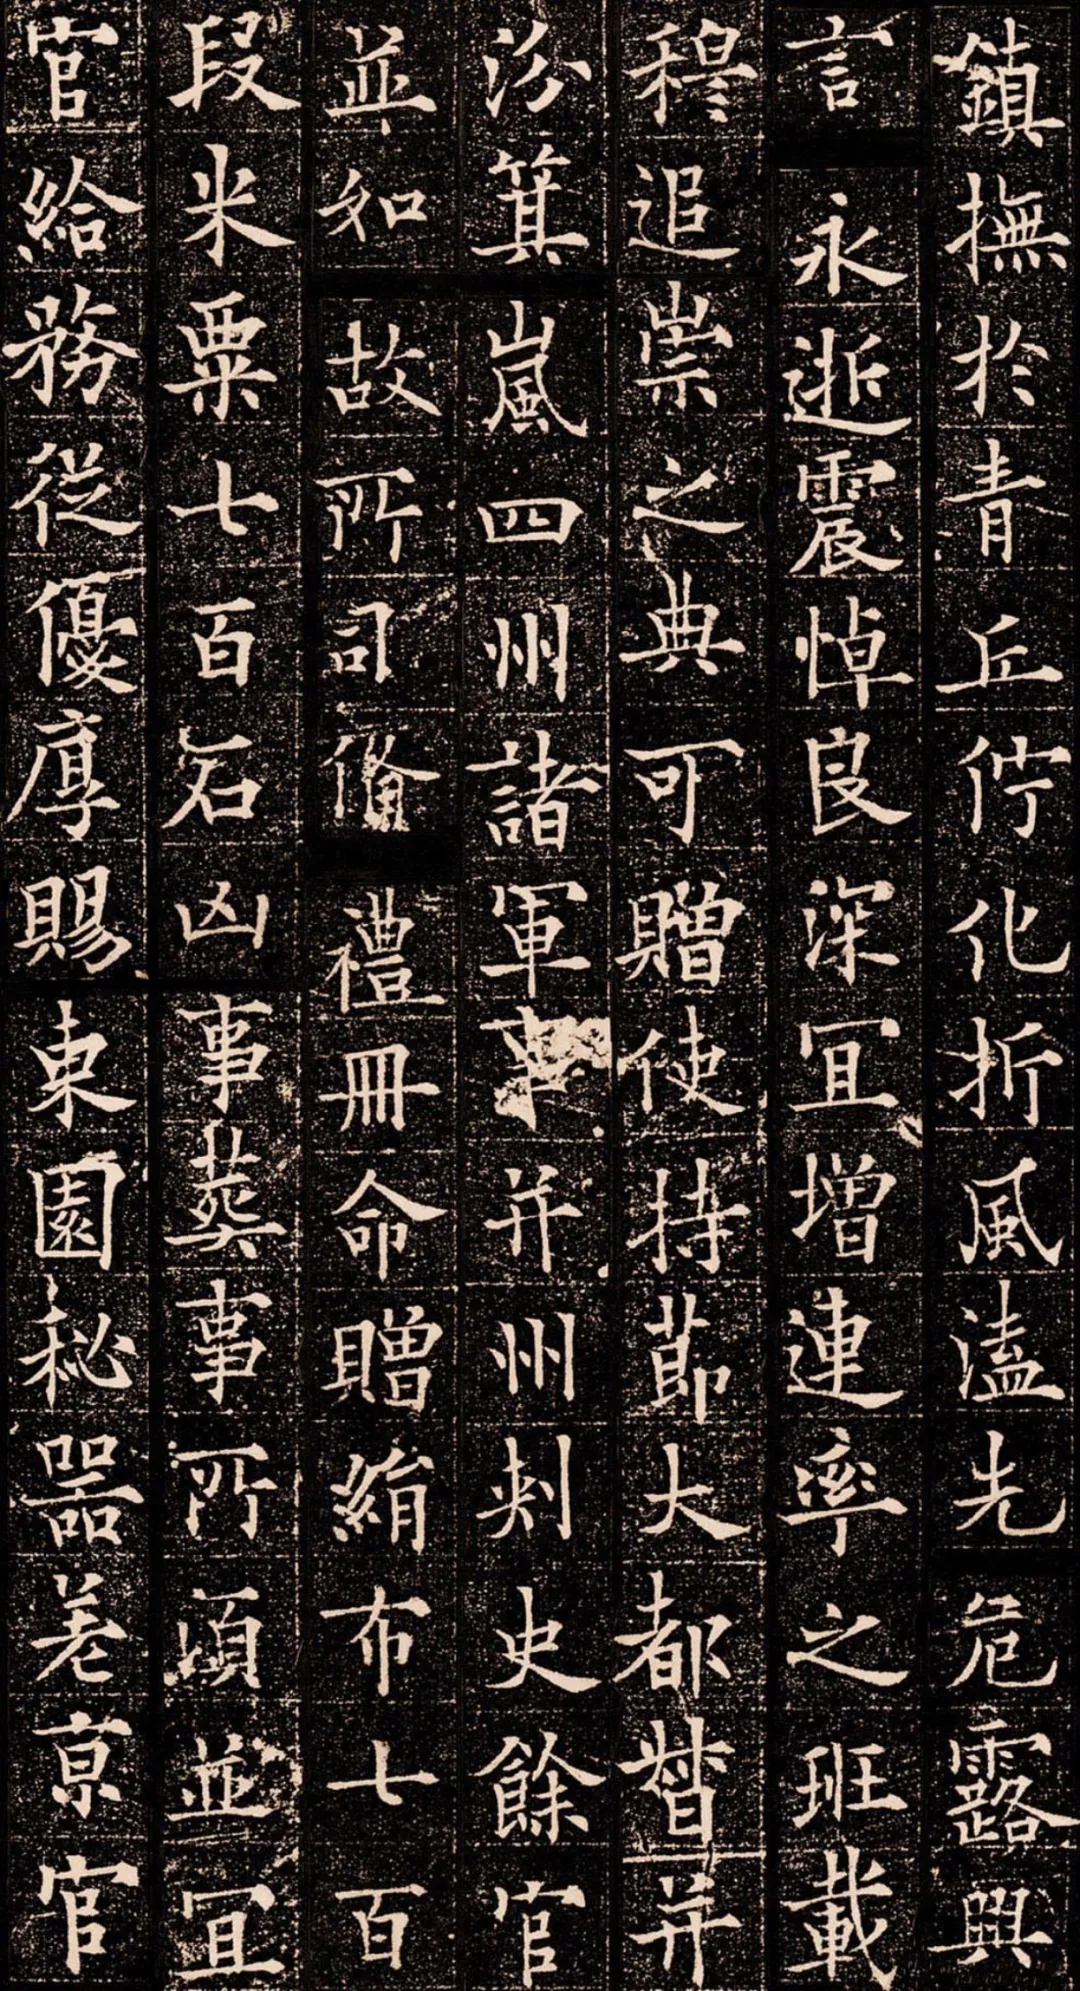 鎮撫於青丘佇化折風溘先危露興
言永逝震悼良深冝增連率之班載
穆追崇之典可贈使持節大都督并
汾箕嵐四州諸軍事并州刾史餘官
並如故所司備禮冊命贈絹布七百
段米粟七百石凶事葬事所湏並冝
官給務從優厚賜東園秘器差京官